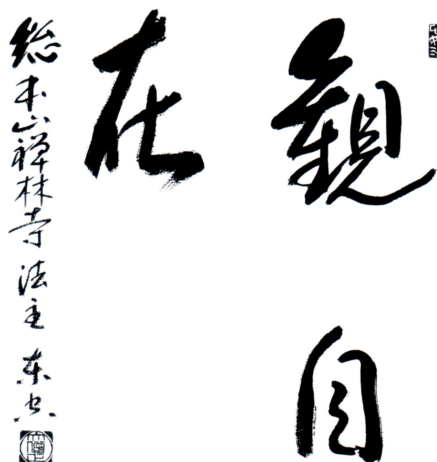 觀自
在
総本山禅林寺法主